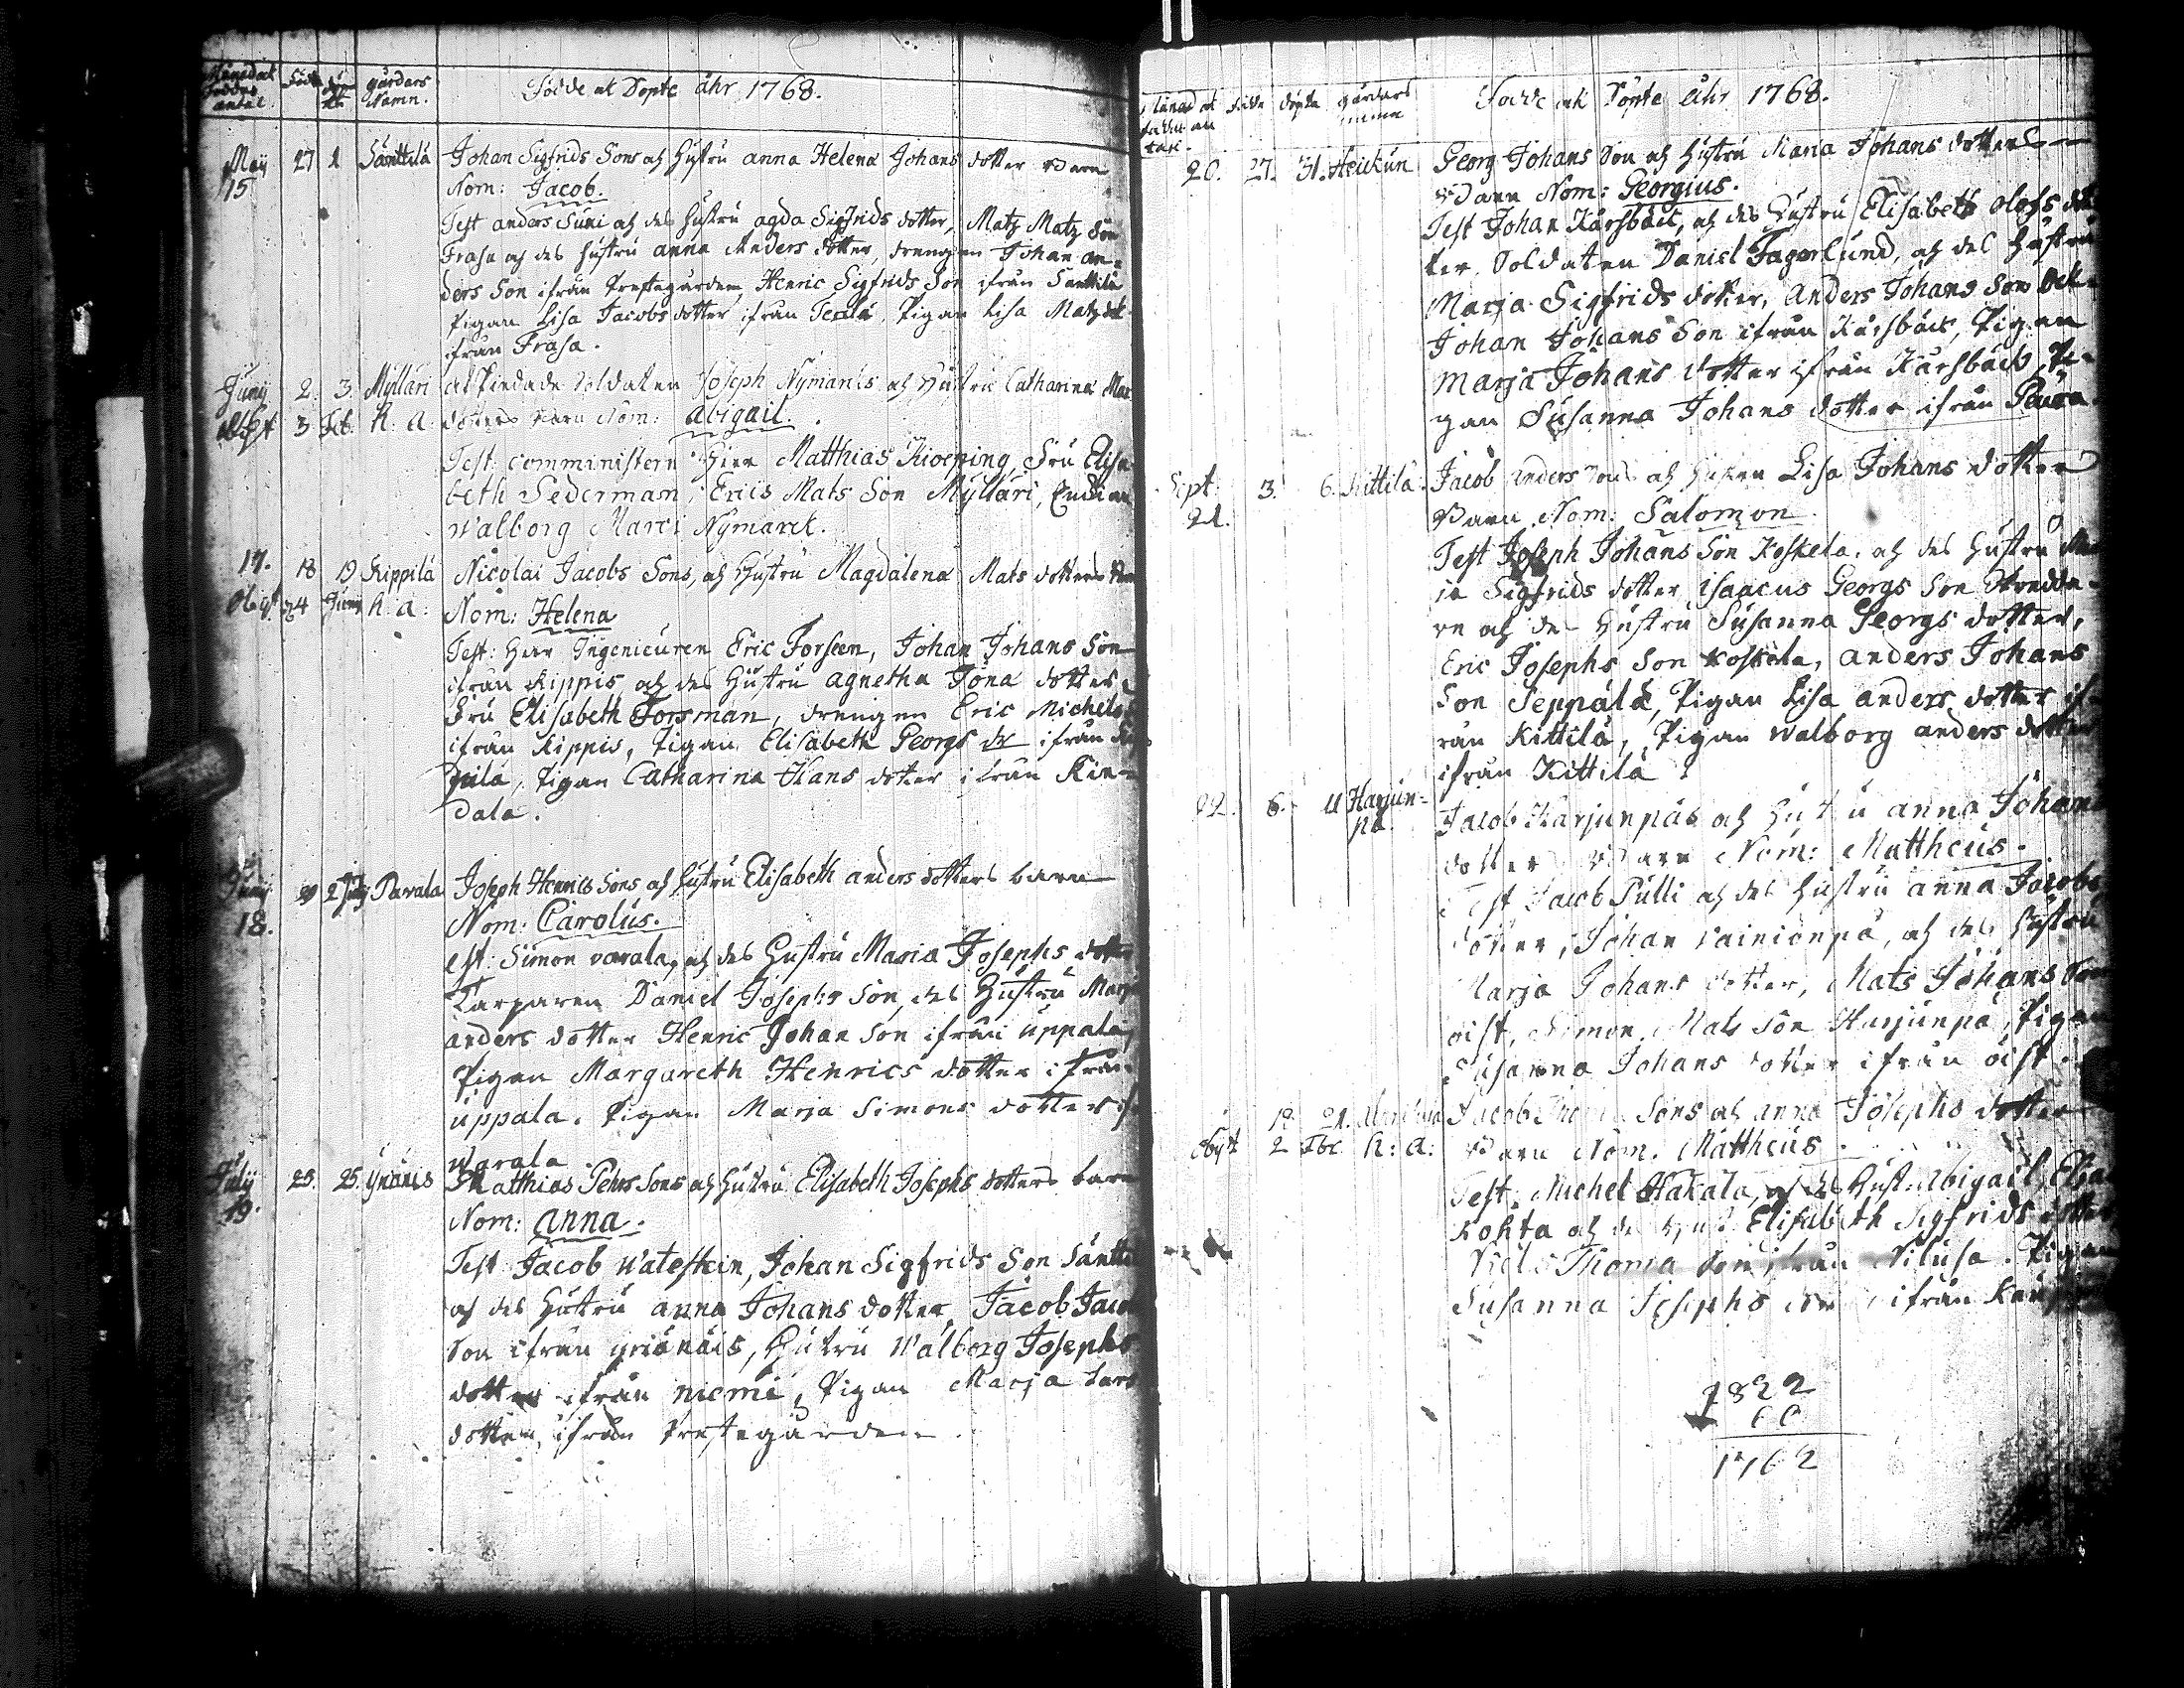 Månad och Födde antal. Födde döpte gårdars Namn. Födde ok Döpte åhr 1768.
May 27 1 Santtila Johan Sigfrids Sons och Hustru Anna Helena Johans dotters Barn
15 Nom: Jacob.
Test anders Suni och des Hustru agda Sigfrids dotter, Matz Matz Son
Frasa och des Hustru anna Anders dotter, drengen Johan an-
ders Son ifrån Prestegården, Henric Sigfrids Son ifrån Santtila
Pigan Lisa Jacobs dotter ifrån Terlä, Pigan Lisa Matzdot
ifrån Frasa.
Juny 2. 3. Myllari afskedade Soldaten Joseph Nymarcks och Hustru Catharina Mar
3 Feb. K. a. dotters Barn Nom: abigail.
Test: comministern Herr Matthias Kioeping, Fru Elisa
beth Sederman, Erics Mats Son Myllari, Enckian
Walborg Marci Nymarck.
17. 18 19 Rippilä Nicolai Jacobs Sons, och Hustru Magdalena Mats dotters Bar
Obiyt 24 Juny K. a: Nom: Helena
Test: Herr Ingenieuren Eric Forseen, Johan Johans Son
ifrån Kippis och des Hustru agnetha Jöna dotter,
Fru Elisabeth Forsman, drengen Eric Michels
ifrån Kippis, Pigan Elisabeth Georgs dr ifrån Rip
pilä, Pigan Catharina Hans dotter ifrån Kin-
dala.
Juny 2 July Parala Joseph Henrics Sons och Hustru Elisabeth anders dotters barn
18. Nom: Carolus.
est: Simon varala, och des Hustru Maria Josephs dotter
Torparen Daniel Josephs Son, des Hustru Marja
anders dotter Henric Johan Son ifrån uppala,
Pigan Margareth Henrics dotter ifrån
uppala. Pigan Marja Simons dotter if
warala
July 25. 25. Matthias Pehrs Sons och Hustru Elisabeth Josephs dotters barn
19. Nom: anna.
Test Jacob Watestein, Johan Sigfrids Son Santti
och des Hustru anna Johans dotter, Jacob Jacob
Son ifrån yriänäis, Hustru Walborg Josephs
dotter ifrån niemi, Pigan Marja Lars
dotter, ifrån Prestegården.
Månad ok födde an tahl. Födde döpte gårdars namn Födde ok Döpte åhr 1768.
20. 27. 31. Heickun Georg Johans Son och Hustru Maria Johans dotters
Barn Nom: Georgius.
Test Johan Kårsbäck, och des Hustru Elisabeth Olofs dot
ter. Soldaten Daniel Fagerlund, och des Hustru
Marja Sigfrids dotter, Anders Johans Son och
Johan Johans Son ifrån Kårsbäck, Pigan
Marja Johans dotter ifrån Kårsbäck, Pi-
gan Susanna Johans dotter ifrån Paura
Sept 3. 6. Kittilä Jacob Anders Sons och Hustru Lisa Johans dotters
21. Barn Nom: Salomon.
Test Joseph Johans Son Koskela, och des Hustru Ma
ia Sigfrids dotter, Isaacus Georgs Son
re och des Hustru Susanna Georgs dotter,
Eric Josephs Son Koskela, anders Johans
Son Seppälä, Pigan Lisa anders dotter if
rån Kittilä, Pigan walborg anders dotter
ifrån Kittilä
22. 8. 11 Harjun- Jacob Harjunpäs och Hustru anna Johans
pä. dotters Barn Nom: Mattheus.
Test Jacob Pulli och des Hustru anna Jacobs
dotter, Johan Vainionpä, och des Hustru
Marja Johans dotter, Mats Johans Son
oist, Simon Mats Son Harjunpä, Pigan
Susanna Johans dotter ifrån oist.
19 21. Jacob Sons och anna Josephs dotters
obyt 2 K: a: Barn Nom. Mattheus
Test: Michel Hakala, och des Hust. Abigail, Elias
Kohta och des Hust Elisabeth Sigfrids dotter
Thoma Son ifrån Nilusa. Pigan
Susanna Josephs dotter ifrån
1822
60
1762